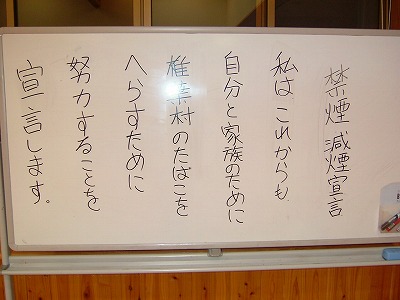 禁煙 減煙宣言
私は これからも
自分と家族のために
椎葉村のたばこを
へらすために
努力することを
宣言します。